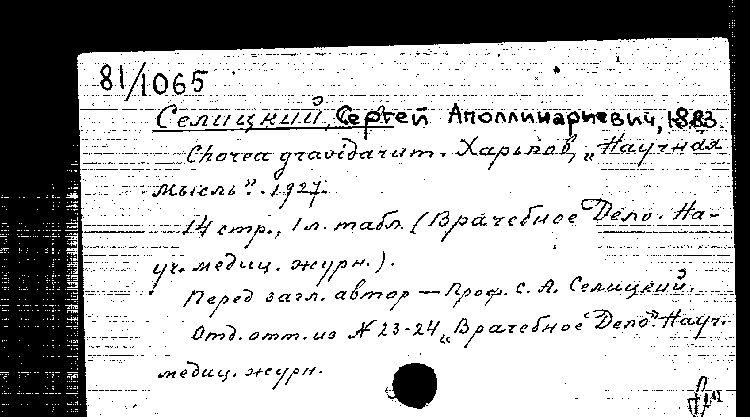 81/1065
Селицкий, Сергей Аполлинариевич, 1883
Chorea gravidarum. Харьков, „Научная
мысль". 1927.
14 стр., 1 л. табл. (Врачебное Дело. На-
уч. медиц. журн.).
Перед загл. автор — Проф. С. А. Селицкий.
Отд. отт. из № 23-24 „Врачебное Дело". Науч.
медиц. журн.